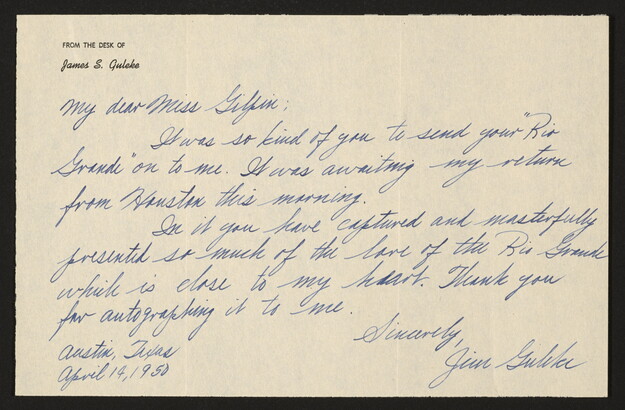 FROM THE DESK OF
James S. Guleke
My dear Miss Gilpin:
It was so kind of you to send your "Rio
Grande" on to me. It was awaiting my return
from Houston this morning.
In it you have captured and masterfully
presented so much of the love of the Rio Grande
which is close to my heart. Thank you
for autographing it to me.
Sincerely,
Jim Guleke
Austin, Texas
April 14, 1950